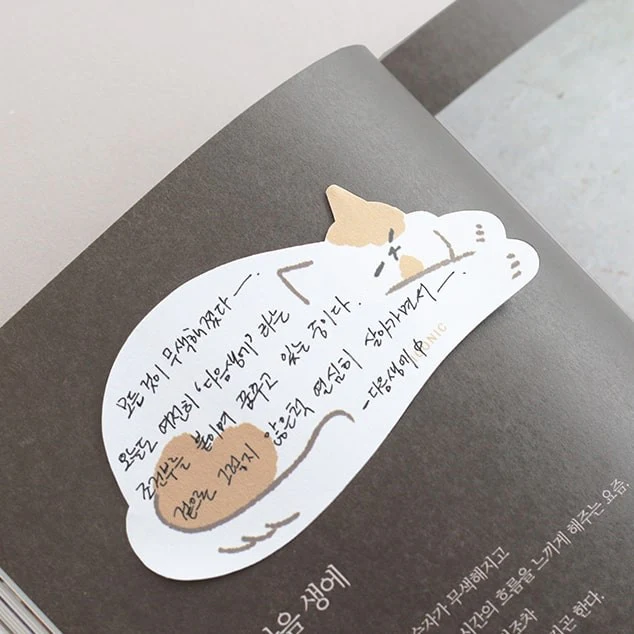 모든 것이 무색해졌다 —.
오늘도 여전히 '다음생에' 라는
조건부를 붙이며 꿈꾸고 있는 중이다.
겉으론 그렇지 않은척 열심히 살아가면서 —.
- 다음생에 中
ICONIC
음 생에
숫자가 무색해지고
시간의 흐름을 느끼게 해주는 요즘.
조차
고 한다.